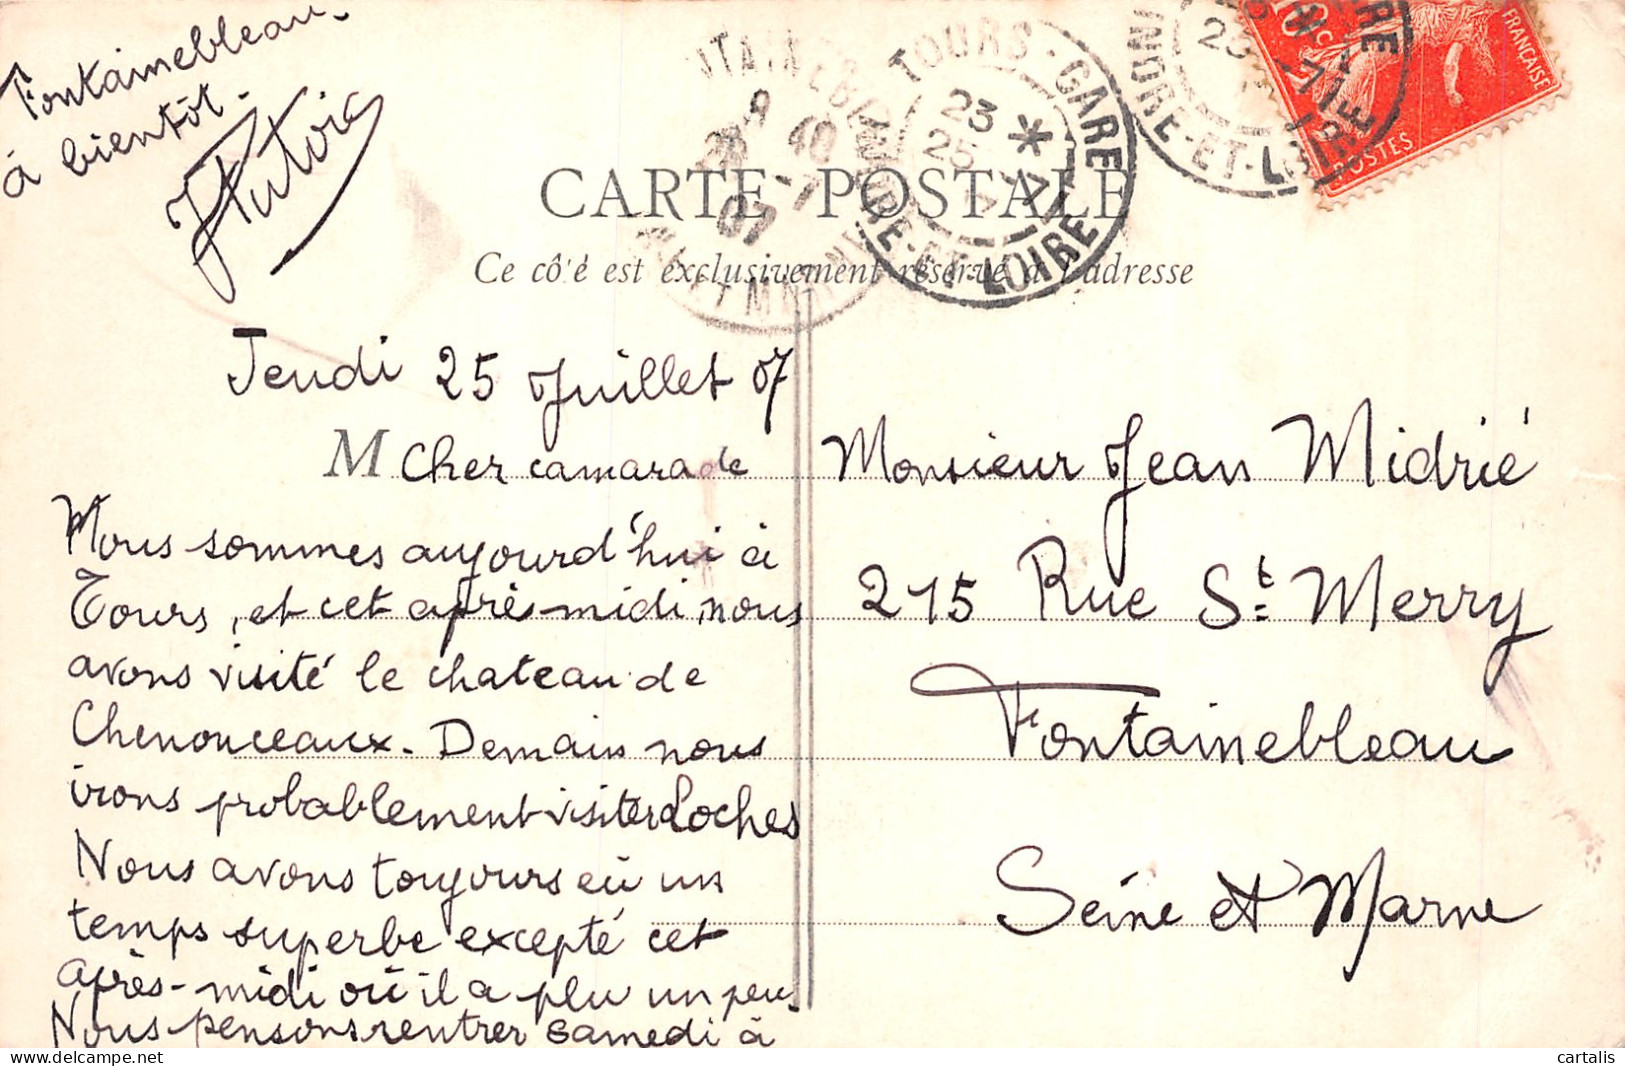 Fontainebleau.
à bientôt.
CARTE POSTALE
Ce côté est exclusivement réservé à l'adresse
TOURS-GARE
INDRE-ET-LOIRE
23 *
25 -7
INDRE-ET-LOIRE
25 -7
FRANÇAISE
POSTES
10c
Jeudi 25 Juillet 07
M Cher camarade
Nous sommes aujourd'hui à
Tours, et cet après-midi, nous
avons visité le chateau de
Chenonceaux. Demain nous
irons probablement visiter Loches
Nous avons toujours eû un
temps superbe excepté cet
après-midi où il a plu un peu.
Nous pensons rentrer samedi à
Monsieur Jean Midrié
215 Rue St. Merry
Fontainebleau
Seine et Marne
cartalis